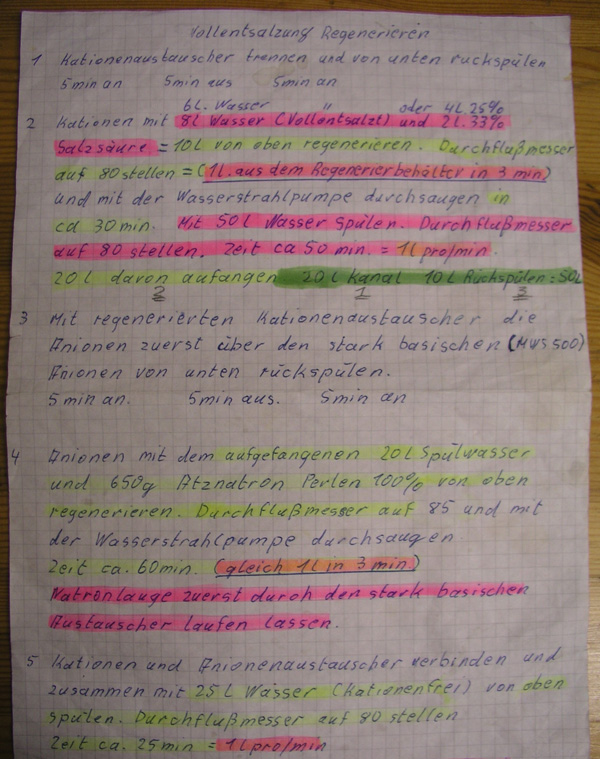 Vollentsalzung Regenerieren
1 Kationenaustauscher trennen und von unten rückspülen
5 min an 5 min aus 5 min an
6 L. Wasser " oder 4 L. 25%
2 Kationen mit 8 l Wasser (Vollentsalzt) und 2 l. 33%
Salzsäure = 10 L von oben regenerieren. Durchflußmesser
auf 80 stellen = (1 l. aus dem Regenerierbehälter in 3 min)
und mit der Wasserstrahlpumpe durchsaugen in
ca 30 min. Mit 50 L Wasser spülen. Durchflußmesser
auf 80 stellen. Zeit ca 50 min. = 1 l pro/min.
20 l davon aufangen 20 l Kanal 10 L Rückspülen = 50 L
2 1 3
3 Mit regenerierten Kationenaustauscher die
Anionen zuerst über den stark basischen (MWS 500)
Anionen von unten rückspülen.
5 min an. 5 min aus. 5 min an
4 Anionen mit dem aufgefangenen 20 l Spülwasser
und 650g Ätznatron Perlen 100% von oben
regenerieren. Durchflußmesser auf 85 und mit
der Wasserstrahlpumpe durchsaugen
Zeit ca. 60 min. (gleich 1 l in 3 min)
Natronlauge zuerst durch den stark basischen
Austauscher laufen lassen.
5 Kationen und Anionenaustauscher verbinden und
zusammen mit 25 l Wasser (Kationenfrei) von oben
spülen. Durchflußmesser auf 80 stellen
Zeit ca. 25 min = 1 l pro/min